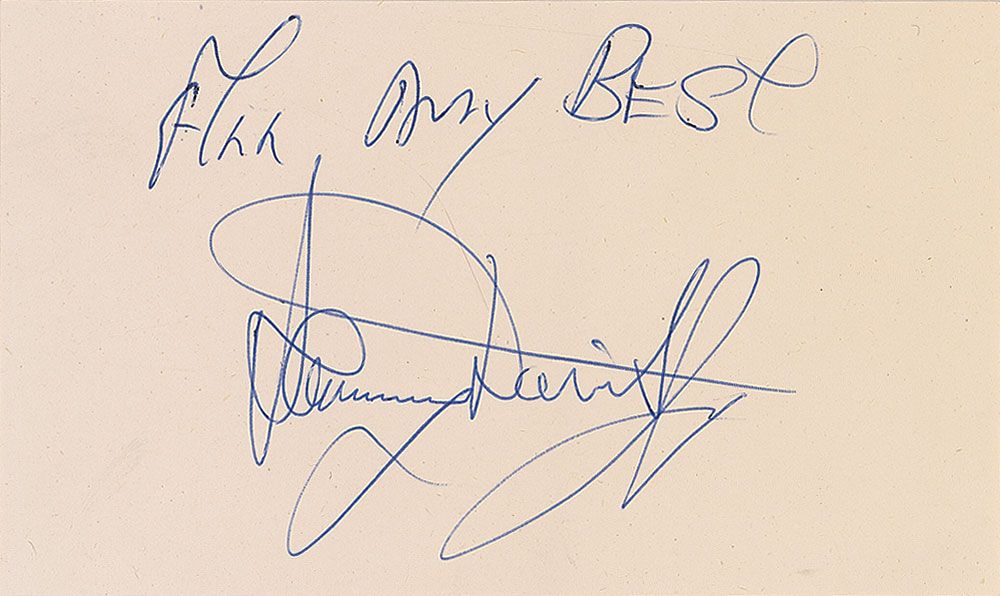 All My BEST
Sammy Davis Jr